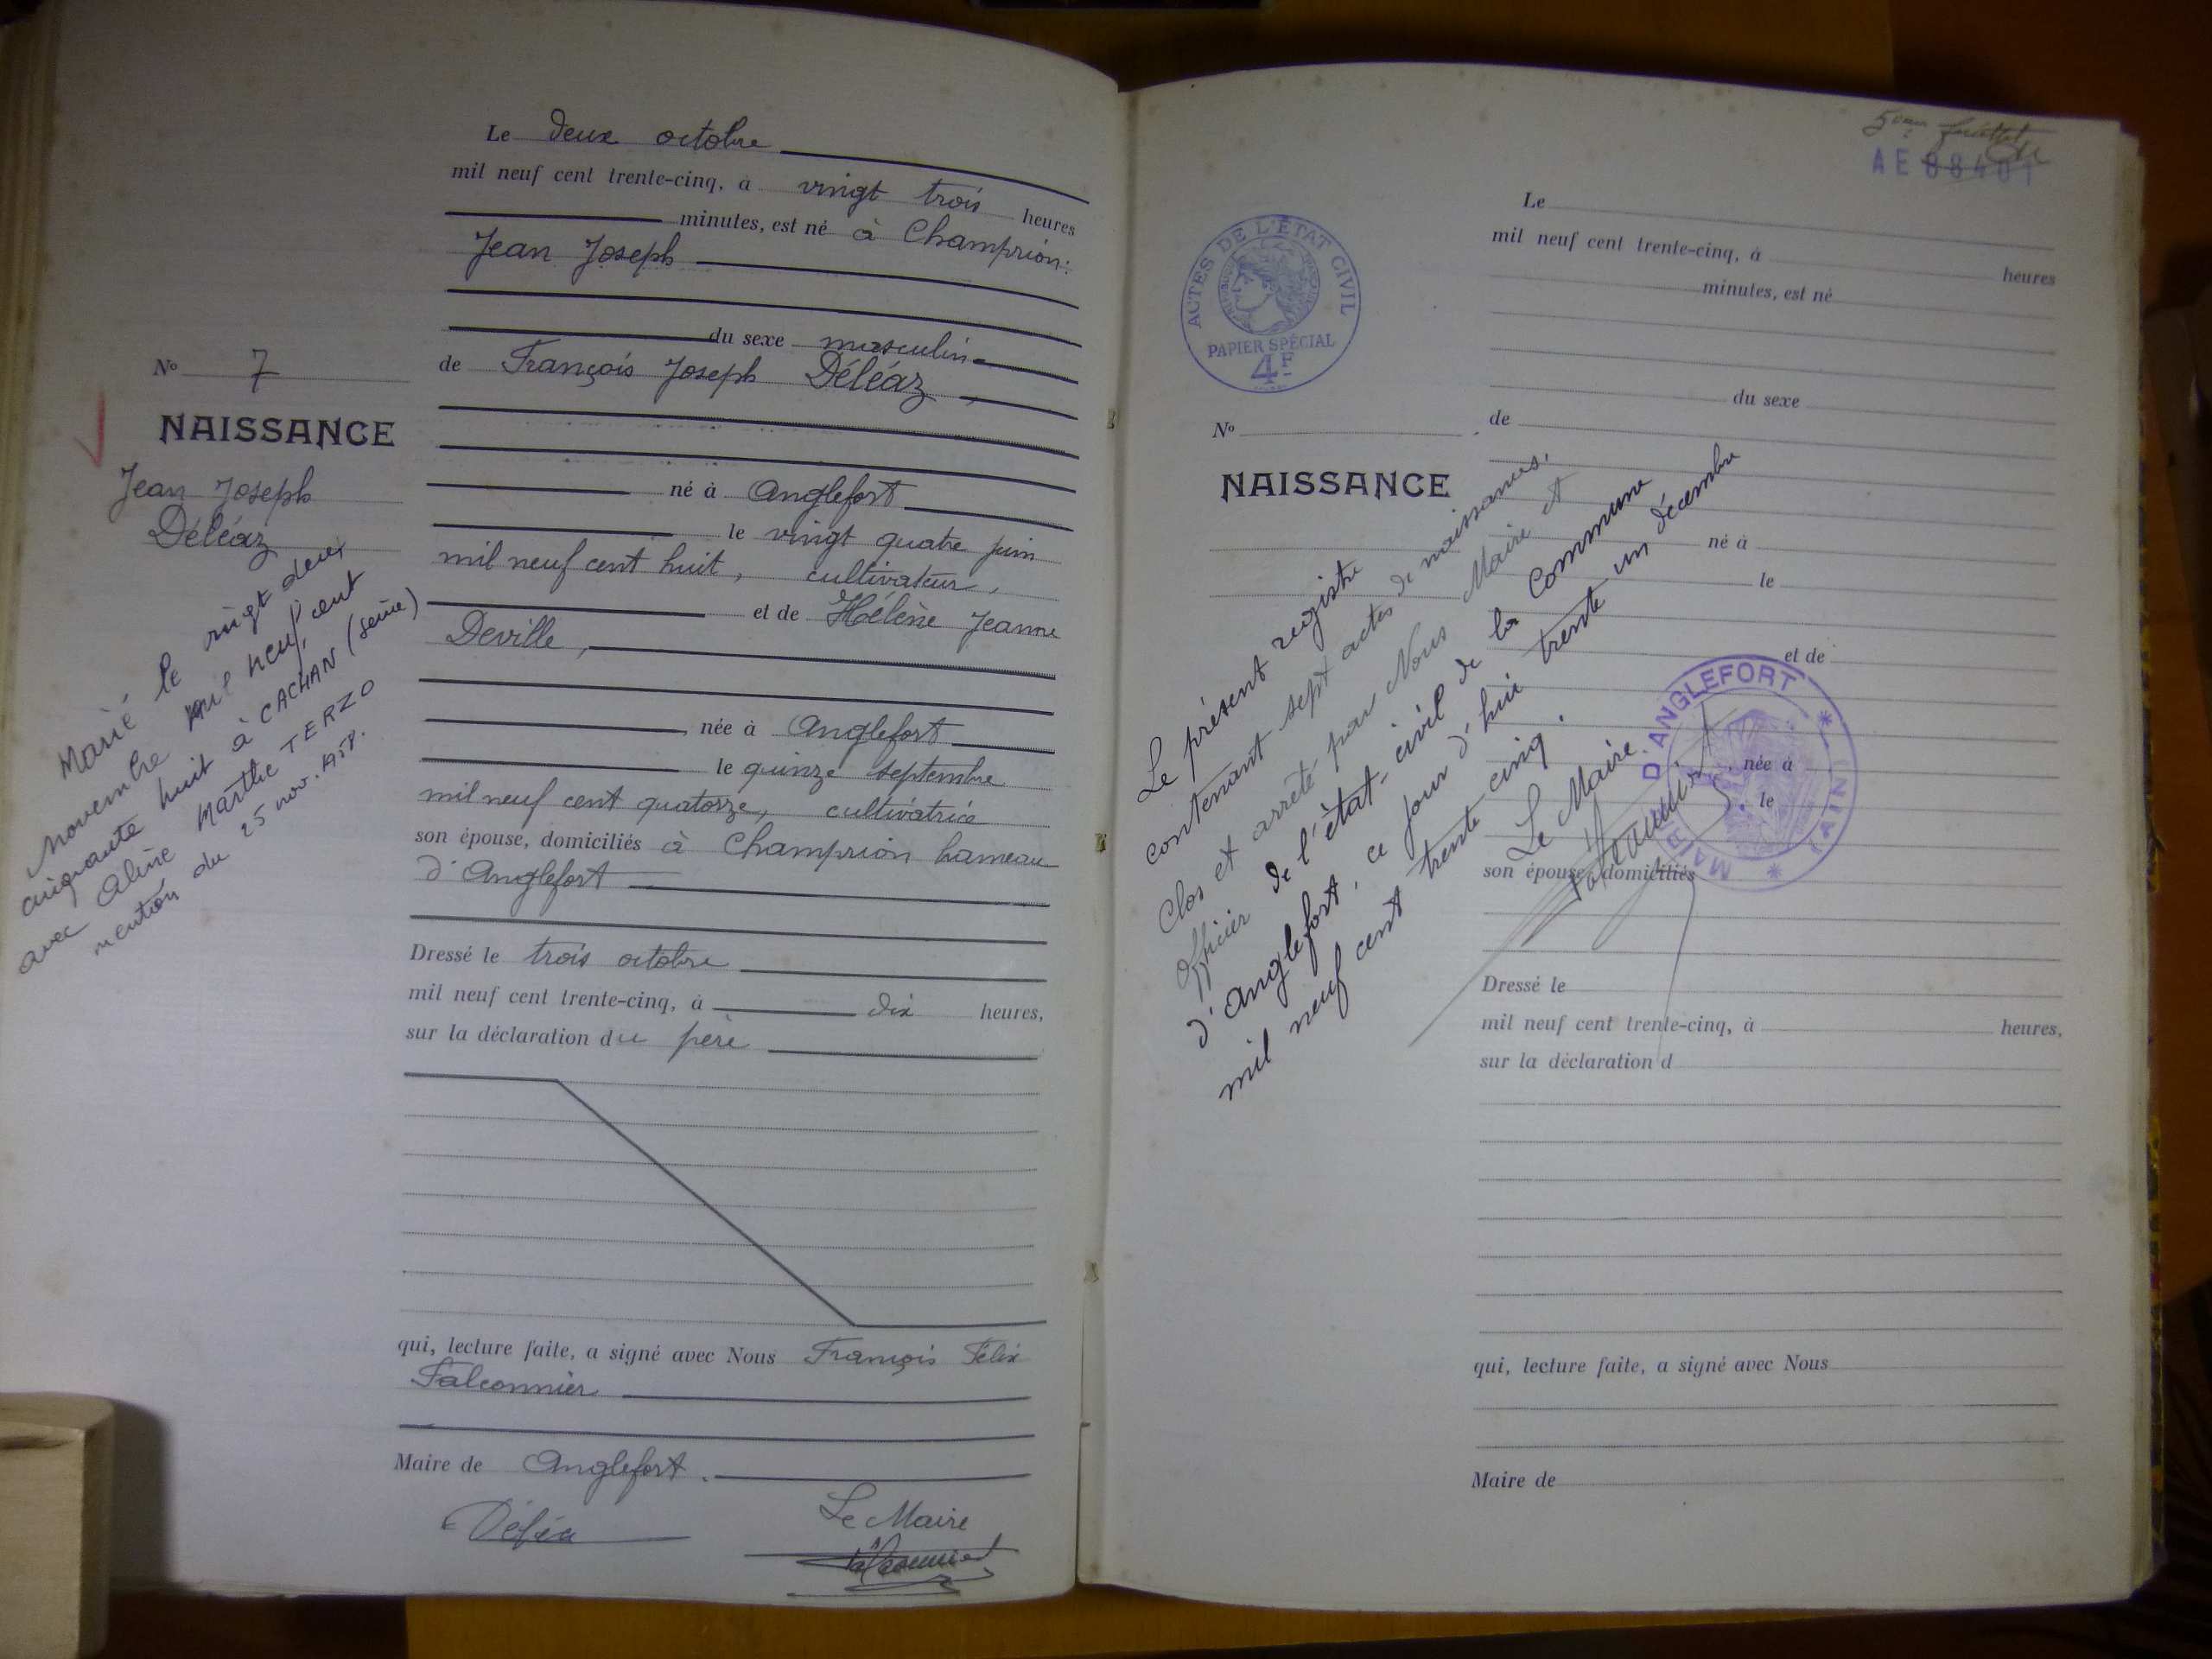 Le deux octobre
mil neuf cent trente-cinq, à vingt trois heures
minutes, est né à Champrion:
Jean Joseph
du sexe masculin
de François Joseph Déléaz,
né à Anglefort
le vingt quatre juin
mil neuf cent huit, cultivateur,
et de Hélène Jeanne
Deville,
née à Anglefort
le quinze septembre
mil neuf cent quatorze, cultivatrice
son épouse, domiciliés à Champrion hameau
d'Anglefort
Dressé le trois octobre
mil neuf cent trente-cinq, à dix heures,
sur la déclaration du père
qui, lecture faite, a signé avec Nous François Félix
Falconnier
Maire de Anglefort.
Le Maire
No 7
NAISSANCE
Jean Joseph
Déléaz
Marié le vingt deux
novembre mil neuf cent
cinquante huit à CACHAN (Seine)
avec Aline Marthe TERZO
mention du 25 nov.
AE 88401
ACTES DE L'ÉTAT CIVIL
PAPIER SPÉCIAL
4F
Le
mil neuf cent trente-cinq, à heures
minutes, est né
du sexe
de
No
NAISSANCE
né à
le
et de
née à
le
son épouse, domiciliés
Dressé le
mil neuf cent trente-cinq, à heures,
sur la déclaration d
qui, lecture faite, a signé avec Nous
Maire de
Le présent registre
contenant sept actes de naissances,
Clos et arrêté par Nous Maire et
Officier de l'état-civil de la Commune
d'Anglefort, ce jour d'hui trente un décembre
mil neuf cent trente cinq.
Le Maire
MAIRIE D'ANGLEFORT * (AIN) *